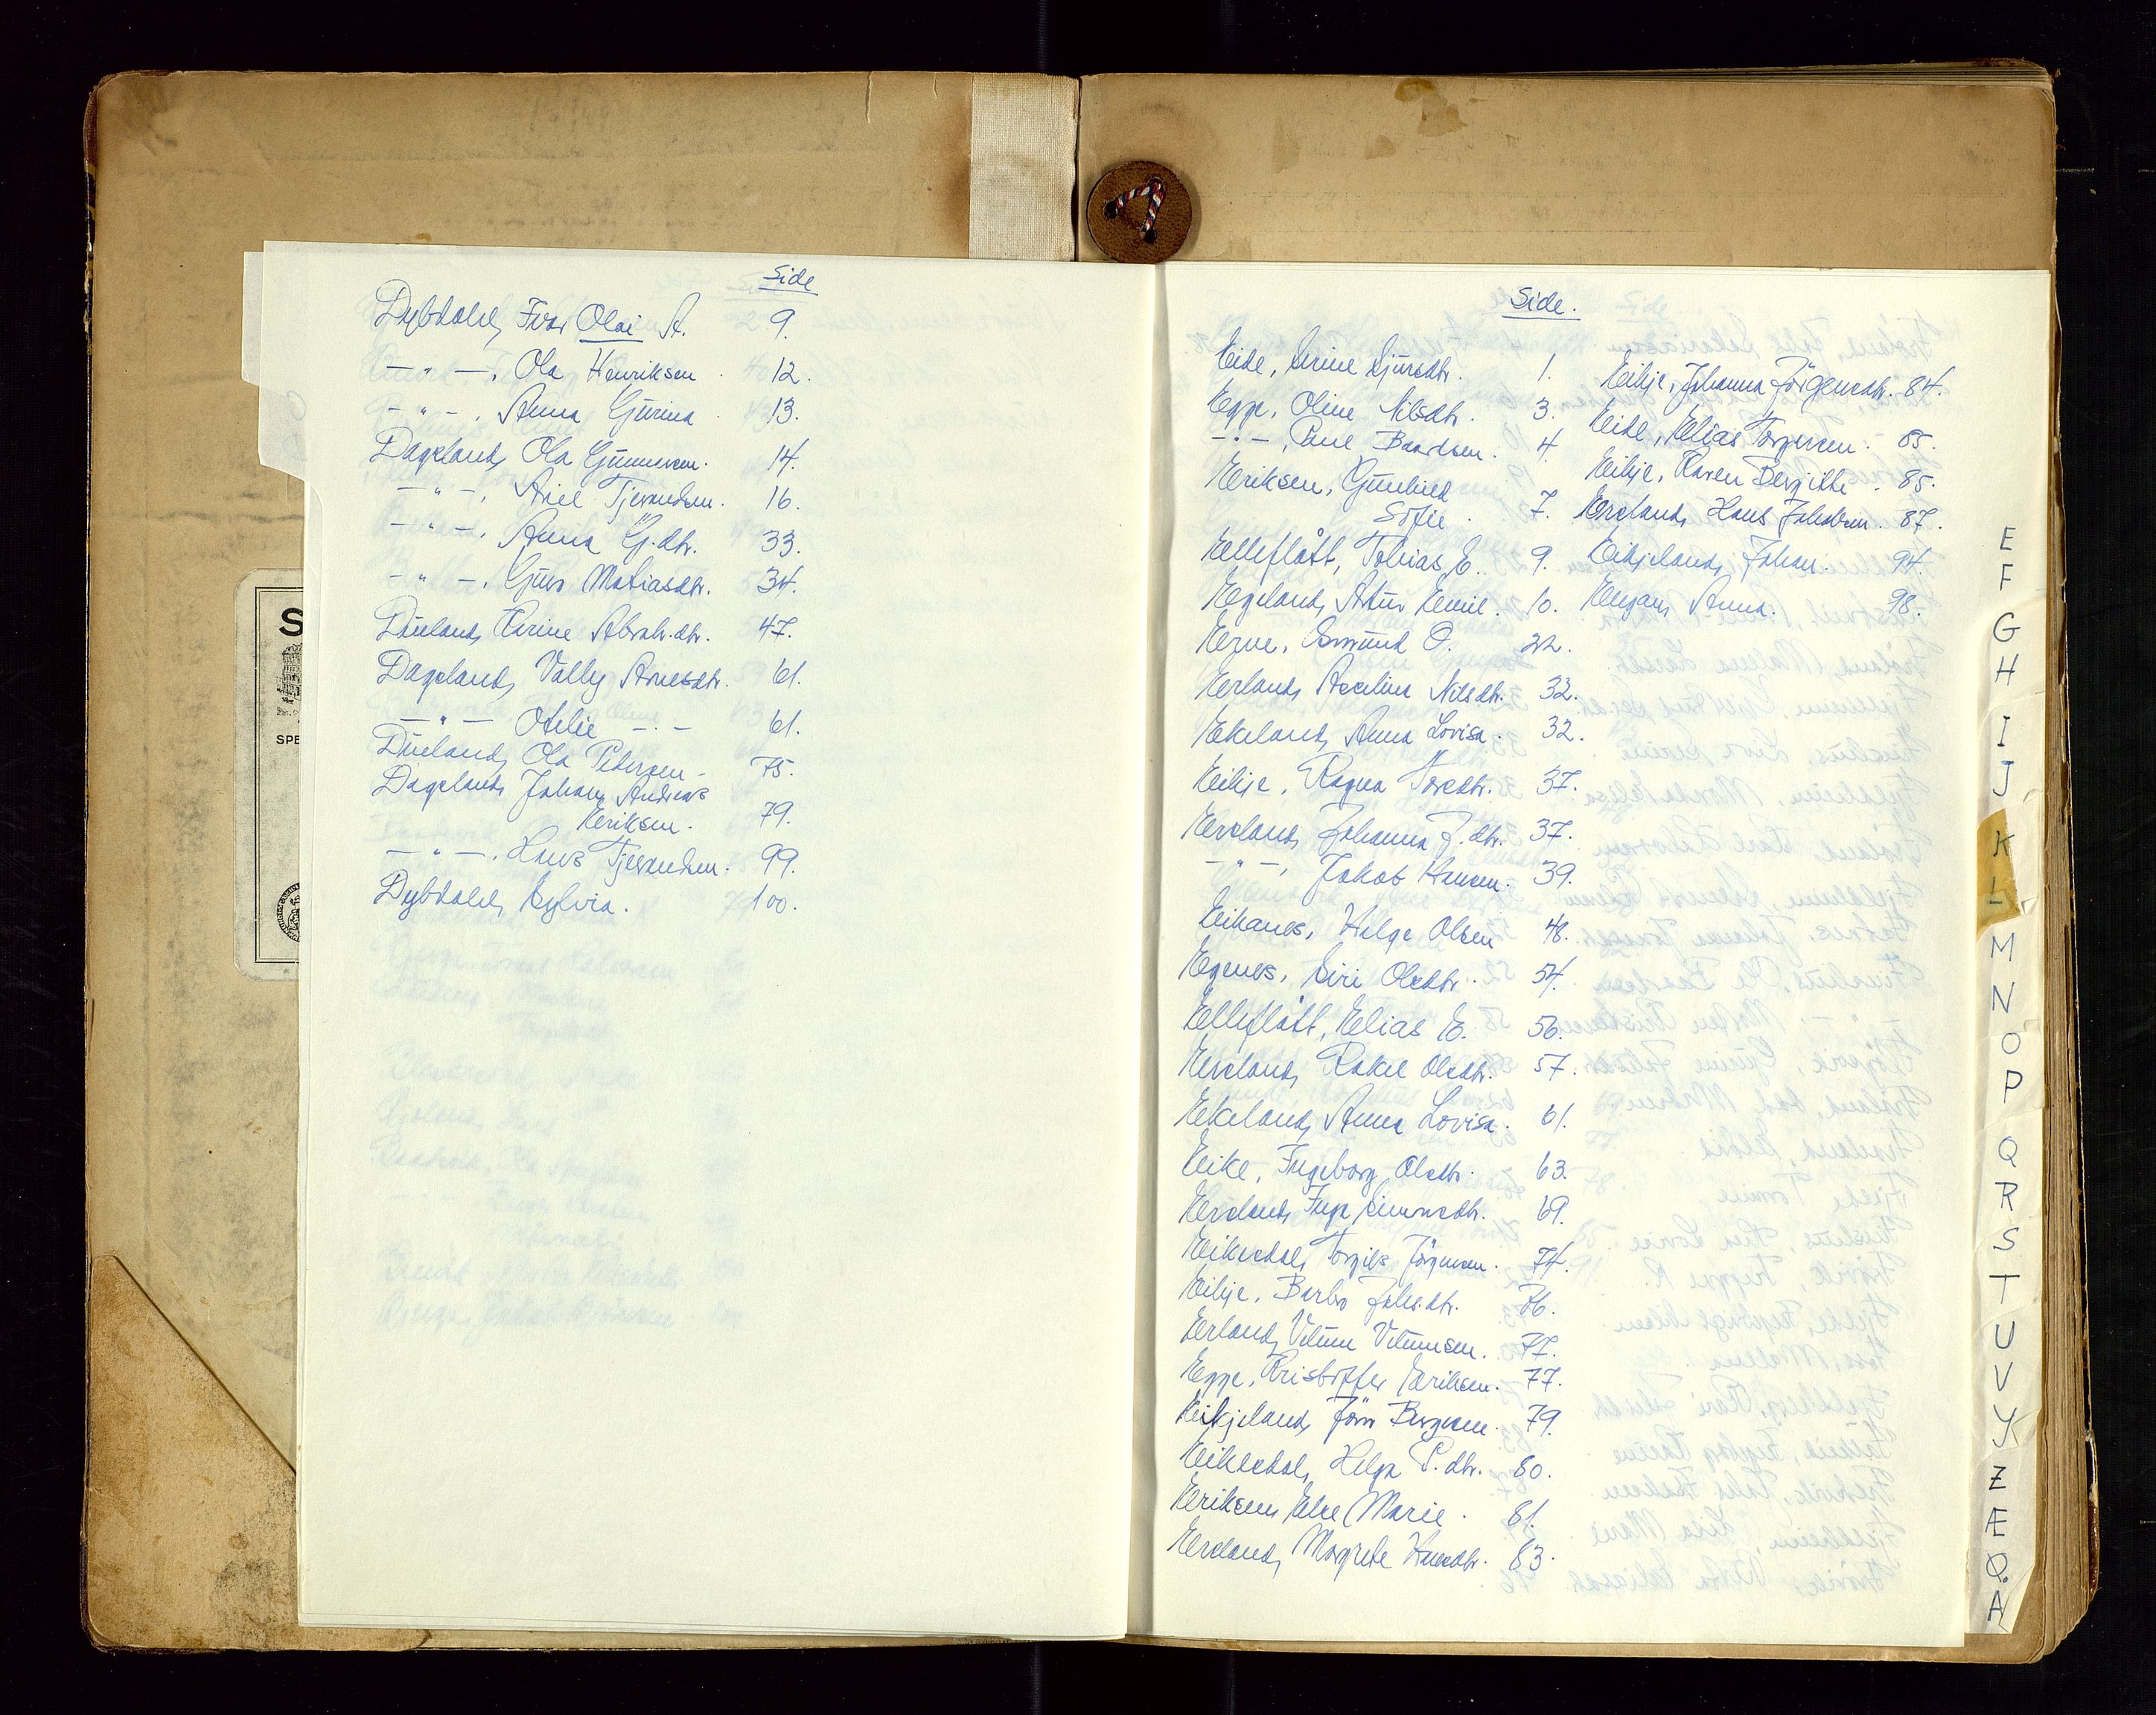 Side
Dybdahl, Ivar Olai A. 9.
— " —, Ola Henriksen. 12.
— " —, Anna Gurina. 13.
Dageland, Ola Gunnarsen. 14.
— " —, Ariel Tjerandsen. 16.
— " —, Anna G.dtr. 33.
— " —, Guro Matiasdtr. 34.
Dueland, Karine Abrah.dtr. 47.
Dageland, Vally Arnesdtr. 61.
— " — Otelie — " — 61.
Dueland, Ola Pedersen 75.
Dageland, Johan Andreas
Eriksen. 79.
— " —, Hans Tjerandsen. 99.
Dybdahl, Sylvia. 100.
Side.
Eide, Serine Sjursdtr. 1.
Egge, Oline Nilsdtr. 3.
— " —, Paul Baardsen. 4.
Eriksen, Gunhild
Sofie. 7.
Elleflått, Tobias E. 9.
Egeland, Artur Emil. 10.
Erve, Osmund O. 22.
Erland, Accelina Nilsdtr. 32.
Ekeland, Anna Lovisa. 32.
Eikje, Ragna Toresdtr. 37.
Ersland, Johanna J.dtr. 37.
— " —, Jakob Hansen. 39.
Eikanes, Helge Olsen 48.
Egenes, Siri Olsdtr. 54.
Elleflått, Elias E. 56.
Ersland, Rakel Olsdtr. 57.
Ekeland, Anna Lovisa. 61.
Eike, Ingeborg Olsdtr. 63.
Ersland, Inga Simonsdtr. 69.
Eikesdal, Torgils Jörgensen. 74.
Eikje, Barbro Johs.dtr. 76.
Erland, Vetum Vetumsen. 77.
Egge, Kristoffer Eriksen. 77.
Eikjeland, Jörn Bergesen. 79.
Eikesdal, Helga P.dtr. 80.
Eriksen, Else Marie. 81.
Ersland, Margrete Hansdtr. 83.
Eikje, Johanna Jörgensdtr. 84.
Eide, Elias Torgersen. 85.
Eikje, Karen Bergitte. 85.
Ersland, Hans Jakobsen. 87.
Eikjeland, Johan. 94.
Elegan, Anna. 98.
E
F
G
H
I
J
K
L
M
N
O
P
Q
R
S
T
U
V
Y
Z
Æ
Ø
Å